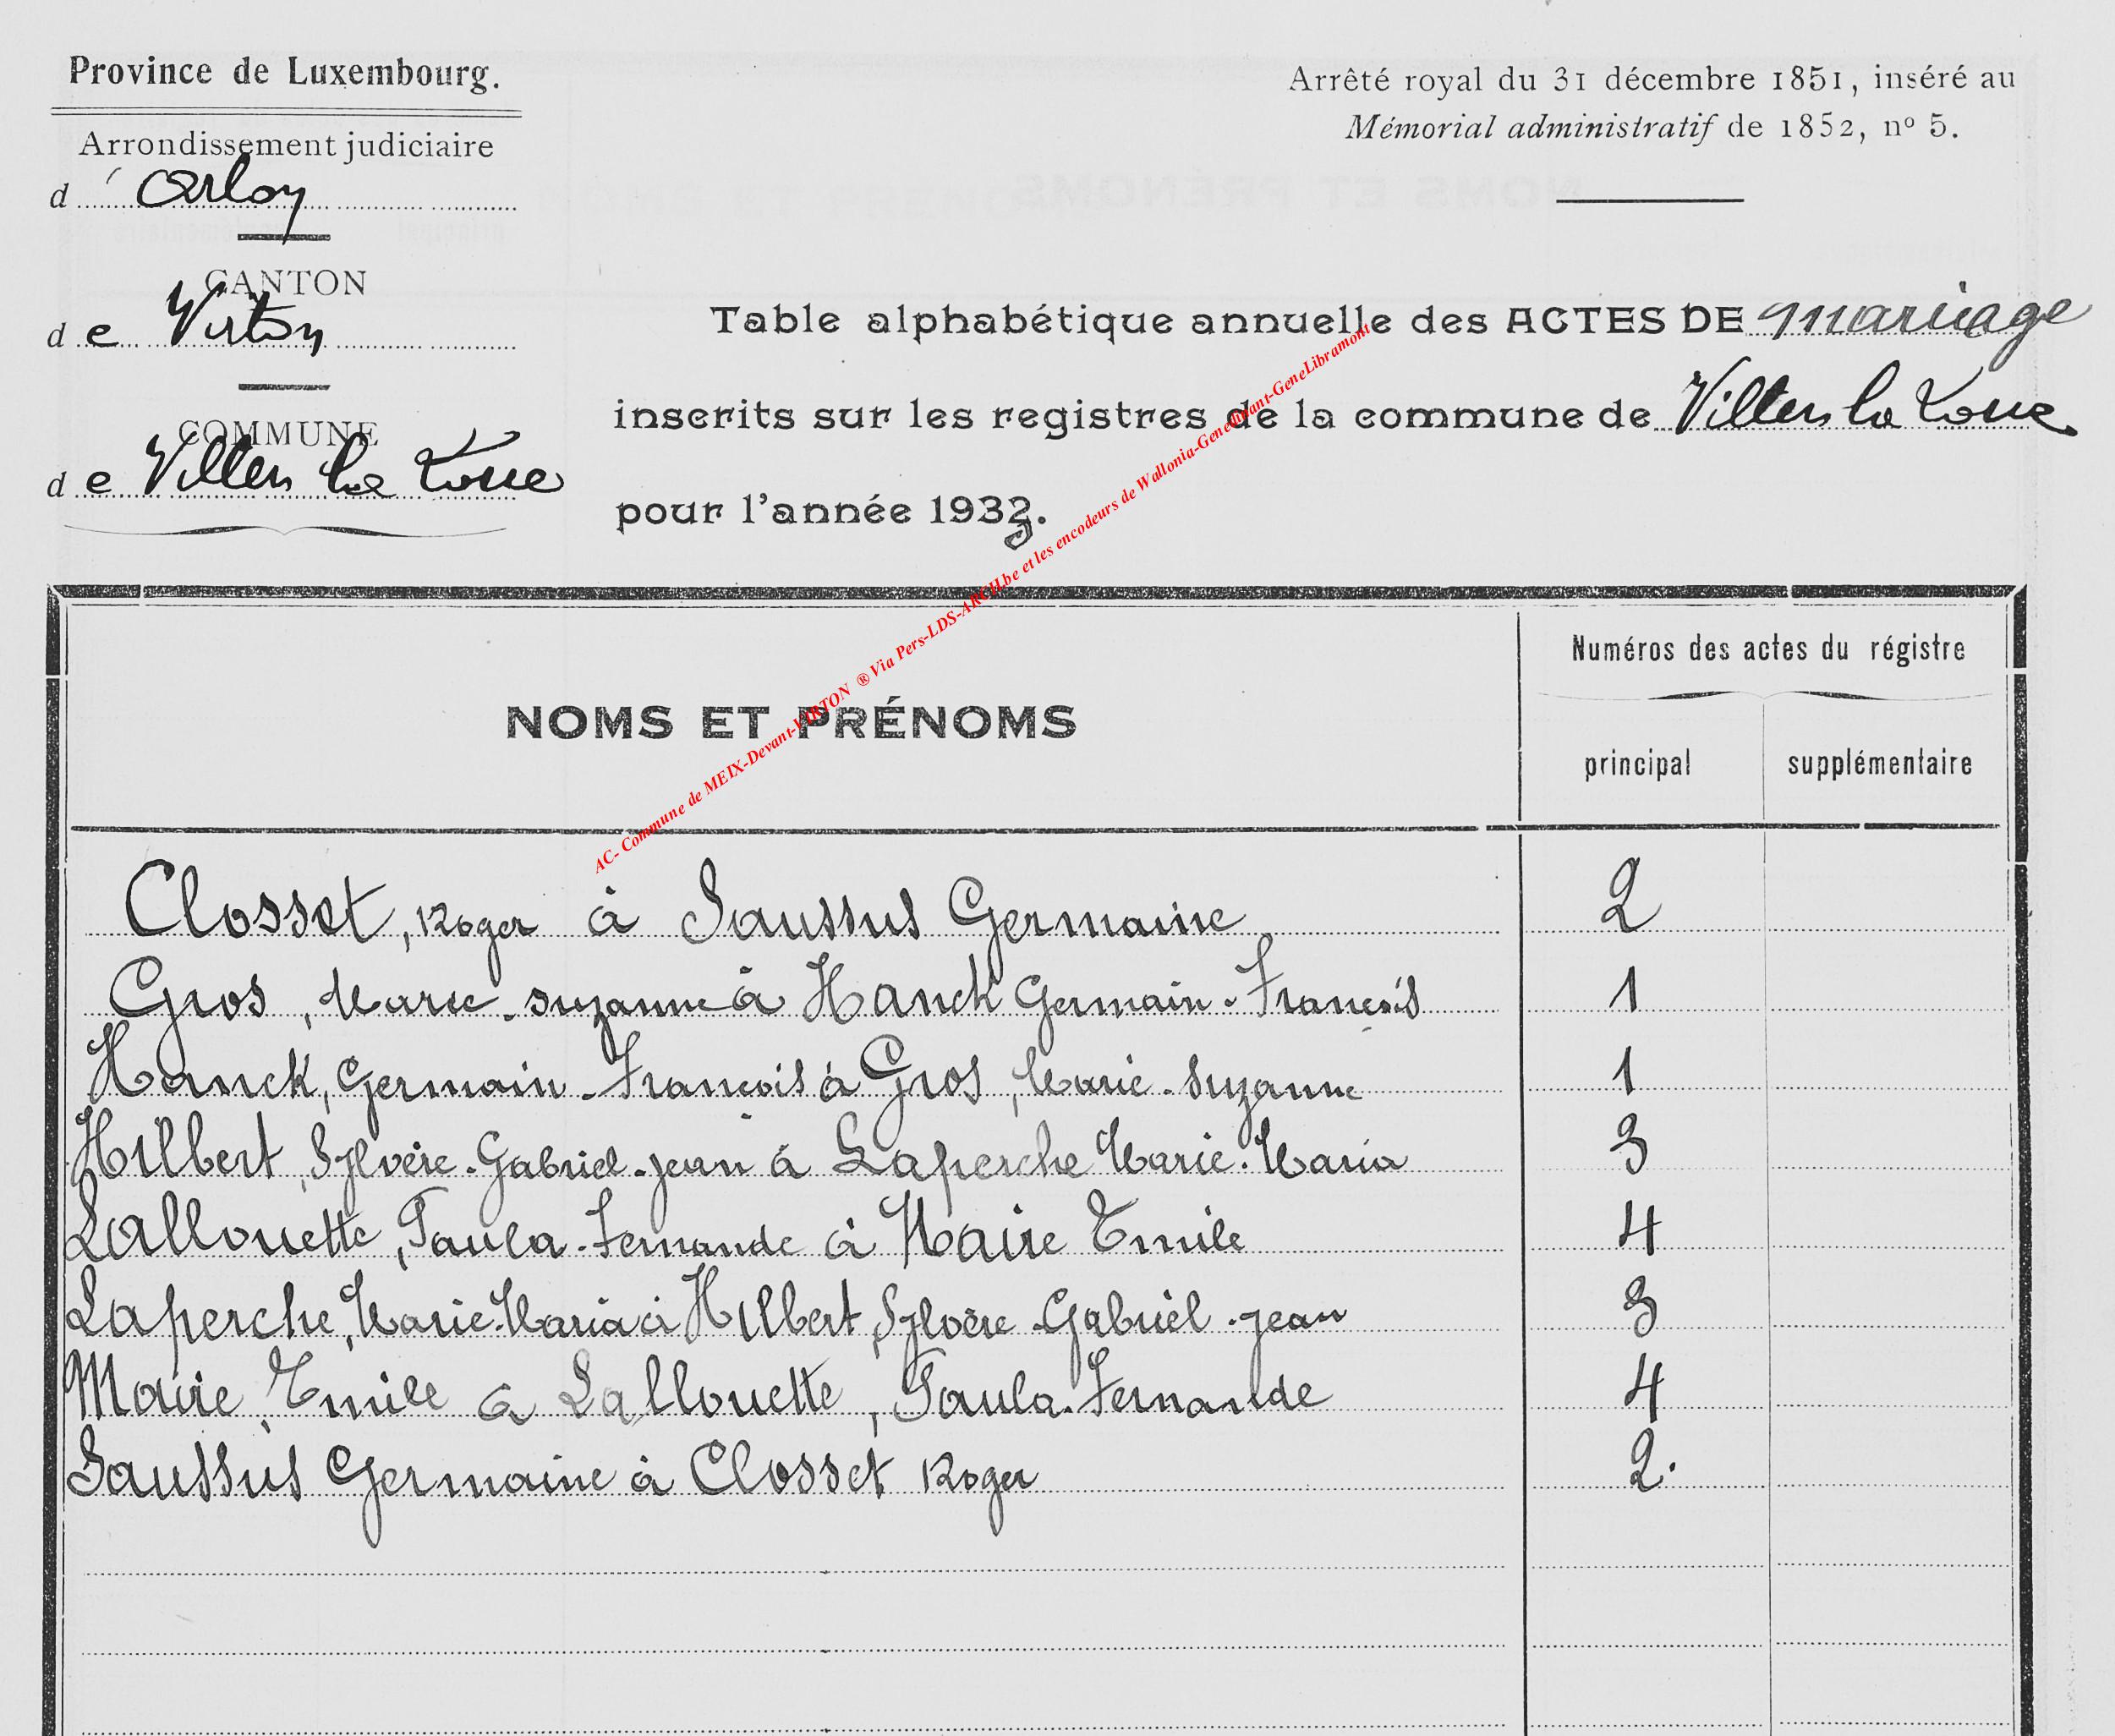 Province de Luxembourg.
Arrondissement judiciaire
d' Arlon
CANTON
de Virton
COMMUNE
de Villers la Loue
Arrêté royal du 31 décembre 1851, inséré au
Mémorial administratif de 1852, nº 5.
Table alphabétique annuelle des ACTES DE mariage
inscrits sur les registres de la commune de Villers la Loue
pour l'année 1933.
AC- Commune de MEIX-Devant-VIRTON ® Via Pers-LDS-ARCH.be et les encodeurs de Wallonia-Genedinant-GeneLibramont
NOMS ET PRÉNOMS
Numéros des actes du régistre
principal
supplémentaire
Closset, Roger à Saussus Germaine 2
Gros, Marie-Suzanne à Hanck Germain-François 1
Hanck, Germain-François à Gros, Marie-Suzanne 1
Hilbert, Sylvère-Gabriel-Jean à Laperche Marie-Maria 3
Lallouette, Paula-Fernande à Maire Emile 4
Laperche, Marie-Maria à Hilbert, Sylvère-Gabriel-Jean 3
Maire, Emile à Lallouette, Paula-Fernande 4
Saussus Germaine à Closset Roger 2.